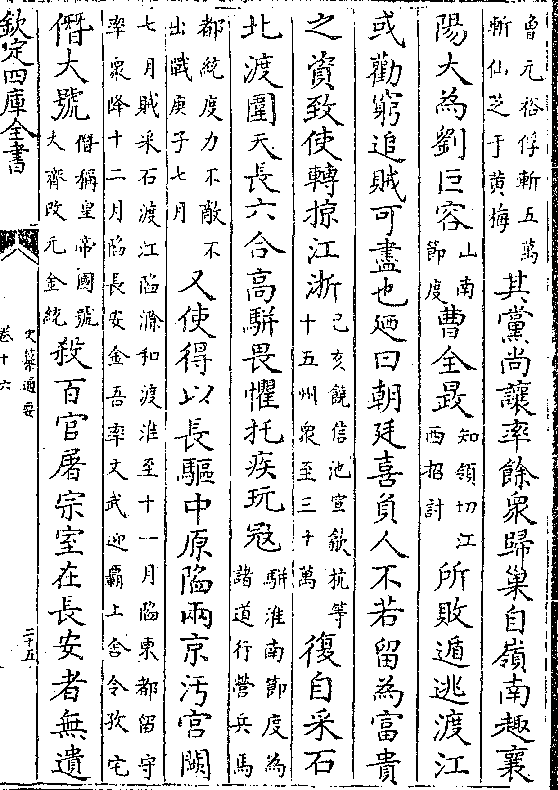 魯元裕俘斬五萬
斬仙芝于黄梅
其黨尚讓率餘衆歸巢自嶺南趣襄
陽大為劉巨容
山南
節度
曹全晸
知領切江
西招討
所敗遁逃渡江
或勸窮追賊可盡也廵曰朝廷喜負人不若留為富貴
之資致使轉掠江浙
己亥饒信池宣歙杭等
十五州衆至三十萬
復自采石
北渡圍天長六合高駢畏懼托疾玩冦
駢淮南節度為
諸道行營兵馬
都統度力不敵不
出戰庚子七月
又使得以長驅中原陷兩京汚宫闕
七月賊采石渡江陷滁和渡淮至十一月陷東都留守
率衆降十二月陷長安金吾率文武迎霸上舍令孜宅
僭大號
僭稱皇帝國號
大齊改元金統
殺百官屠宗室在長安者無遺
欽定四庫全書
史纂通要
卷十六
二十五